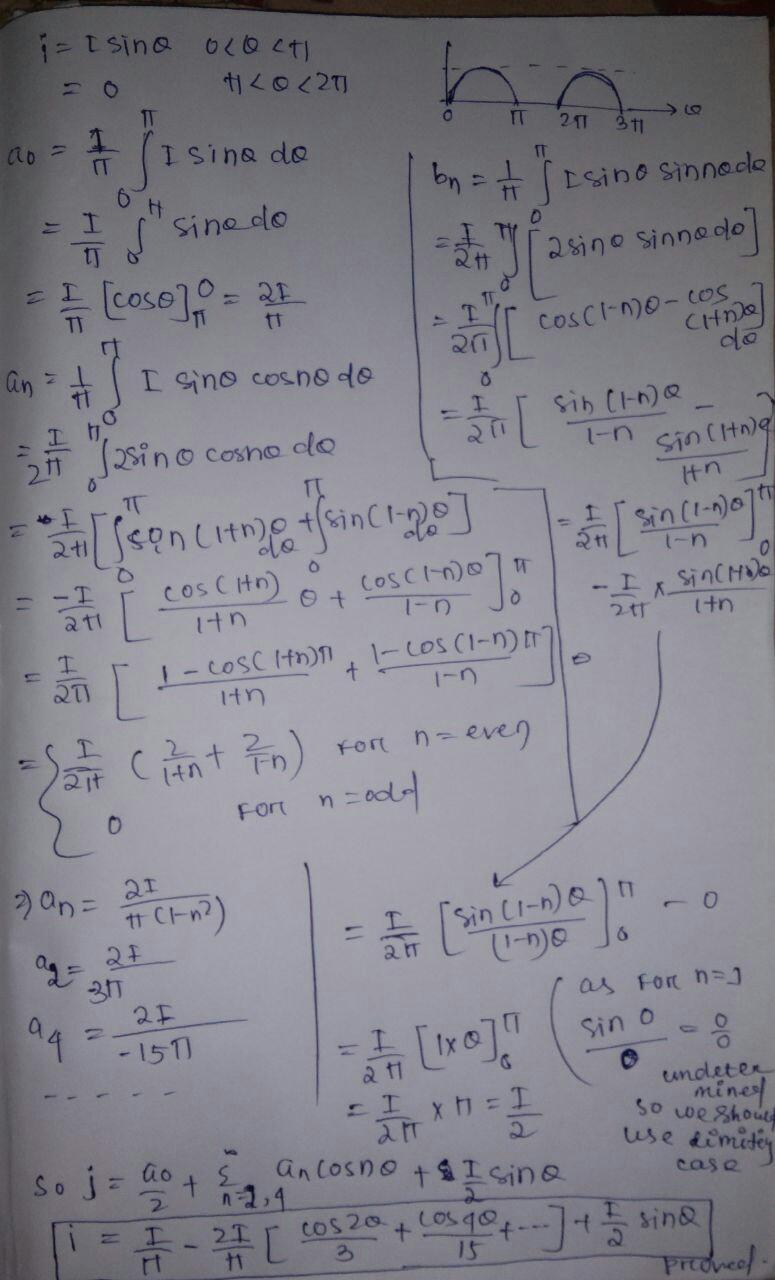 i = I sinθ 0<θ<π
= 0 π<θ<2π
0 π 2π 3π θ
a0 = 1/π ∫₀^π I sinθ dθ
= I/π ∫₀^π sinθ dθ
= I/π [cosθ]_π^0 = 2I/π
an = 1/π ∫₀^π I sinθ cosnθ dθ
= I/2π ∫₀^π 2sinθ cosnθ dθ
= I/2π [∫₀^π sin(1+n)θ dθ + ∫₀^π sin(1-n)θ dθ]
= -I/2π [cos(1+n)/(1+n) θ + cos(1-n)θ/(1-n)]₀^π
= I/2π [(1-cos(1+n)π)/(1+n) + (1-cos(1-n)π)/(1-n)]
= { I/2π (2/(1+n) + 2/(1-n)) For n=even
0 For n=odd
⇒ an = 2I/π(1-n²)
a2 = 2I/3π
a4 = 2I/-15π
- - - - -
bn = 1/π ∫₀^π I sinθ sinnθdθ
= I/2π ∫₀^π [2sinθ sinnθdθ]
= I/2π ∫₀^π [cos(1-n)θ - cos(1+n)θ] dθ
= I/2π [sin(1-n)θ/(1-n) - sin(1+n)θ/(1+n)]
= I/2π [sin(1-n)θ/(1-n)]₀^π
- I/2π × sin(1+n)θ/(1+n)
= I/2π [sin(1-n)θ/(1-n)θ]₀^π - 0
= I/2π [1×θ]₀^π
= I/2π × π = I/2
(as For n=1
sin 0/0 = 0/0
undetermined
so we should
use limiting
case
So i = a0/2 + Σ n=2,4 an cosnθ + I/2 sinθ
i = I/π - 2I/π [cos2θ/3 + cos4θ/15 + ---] + I/2 sinθ
proved.